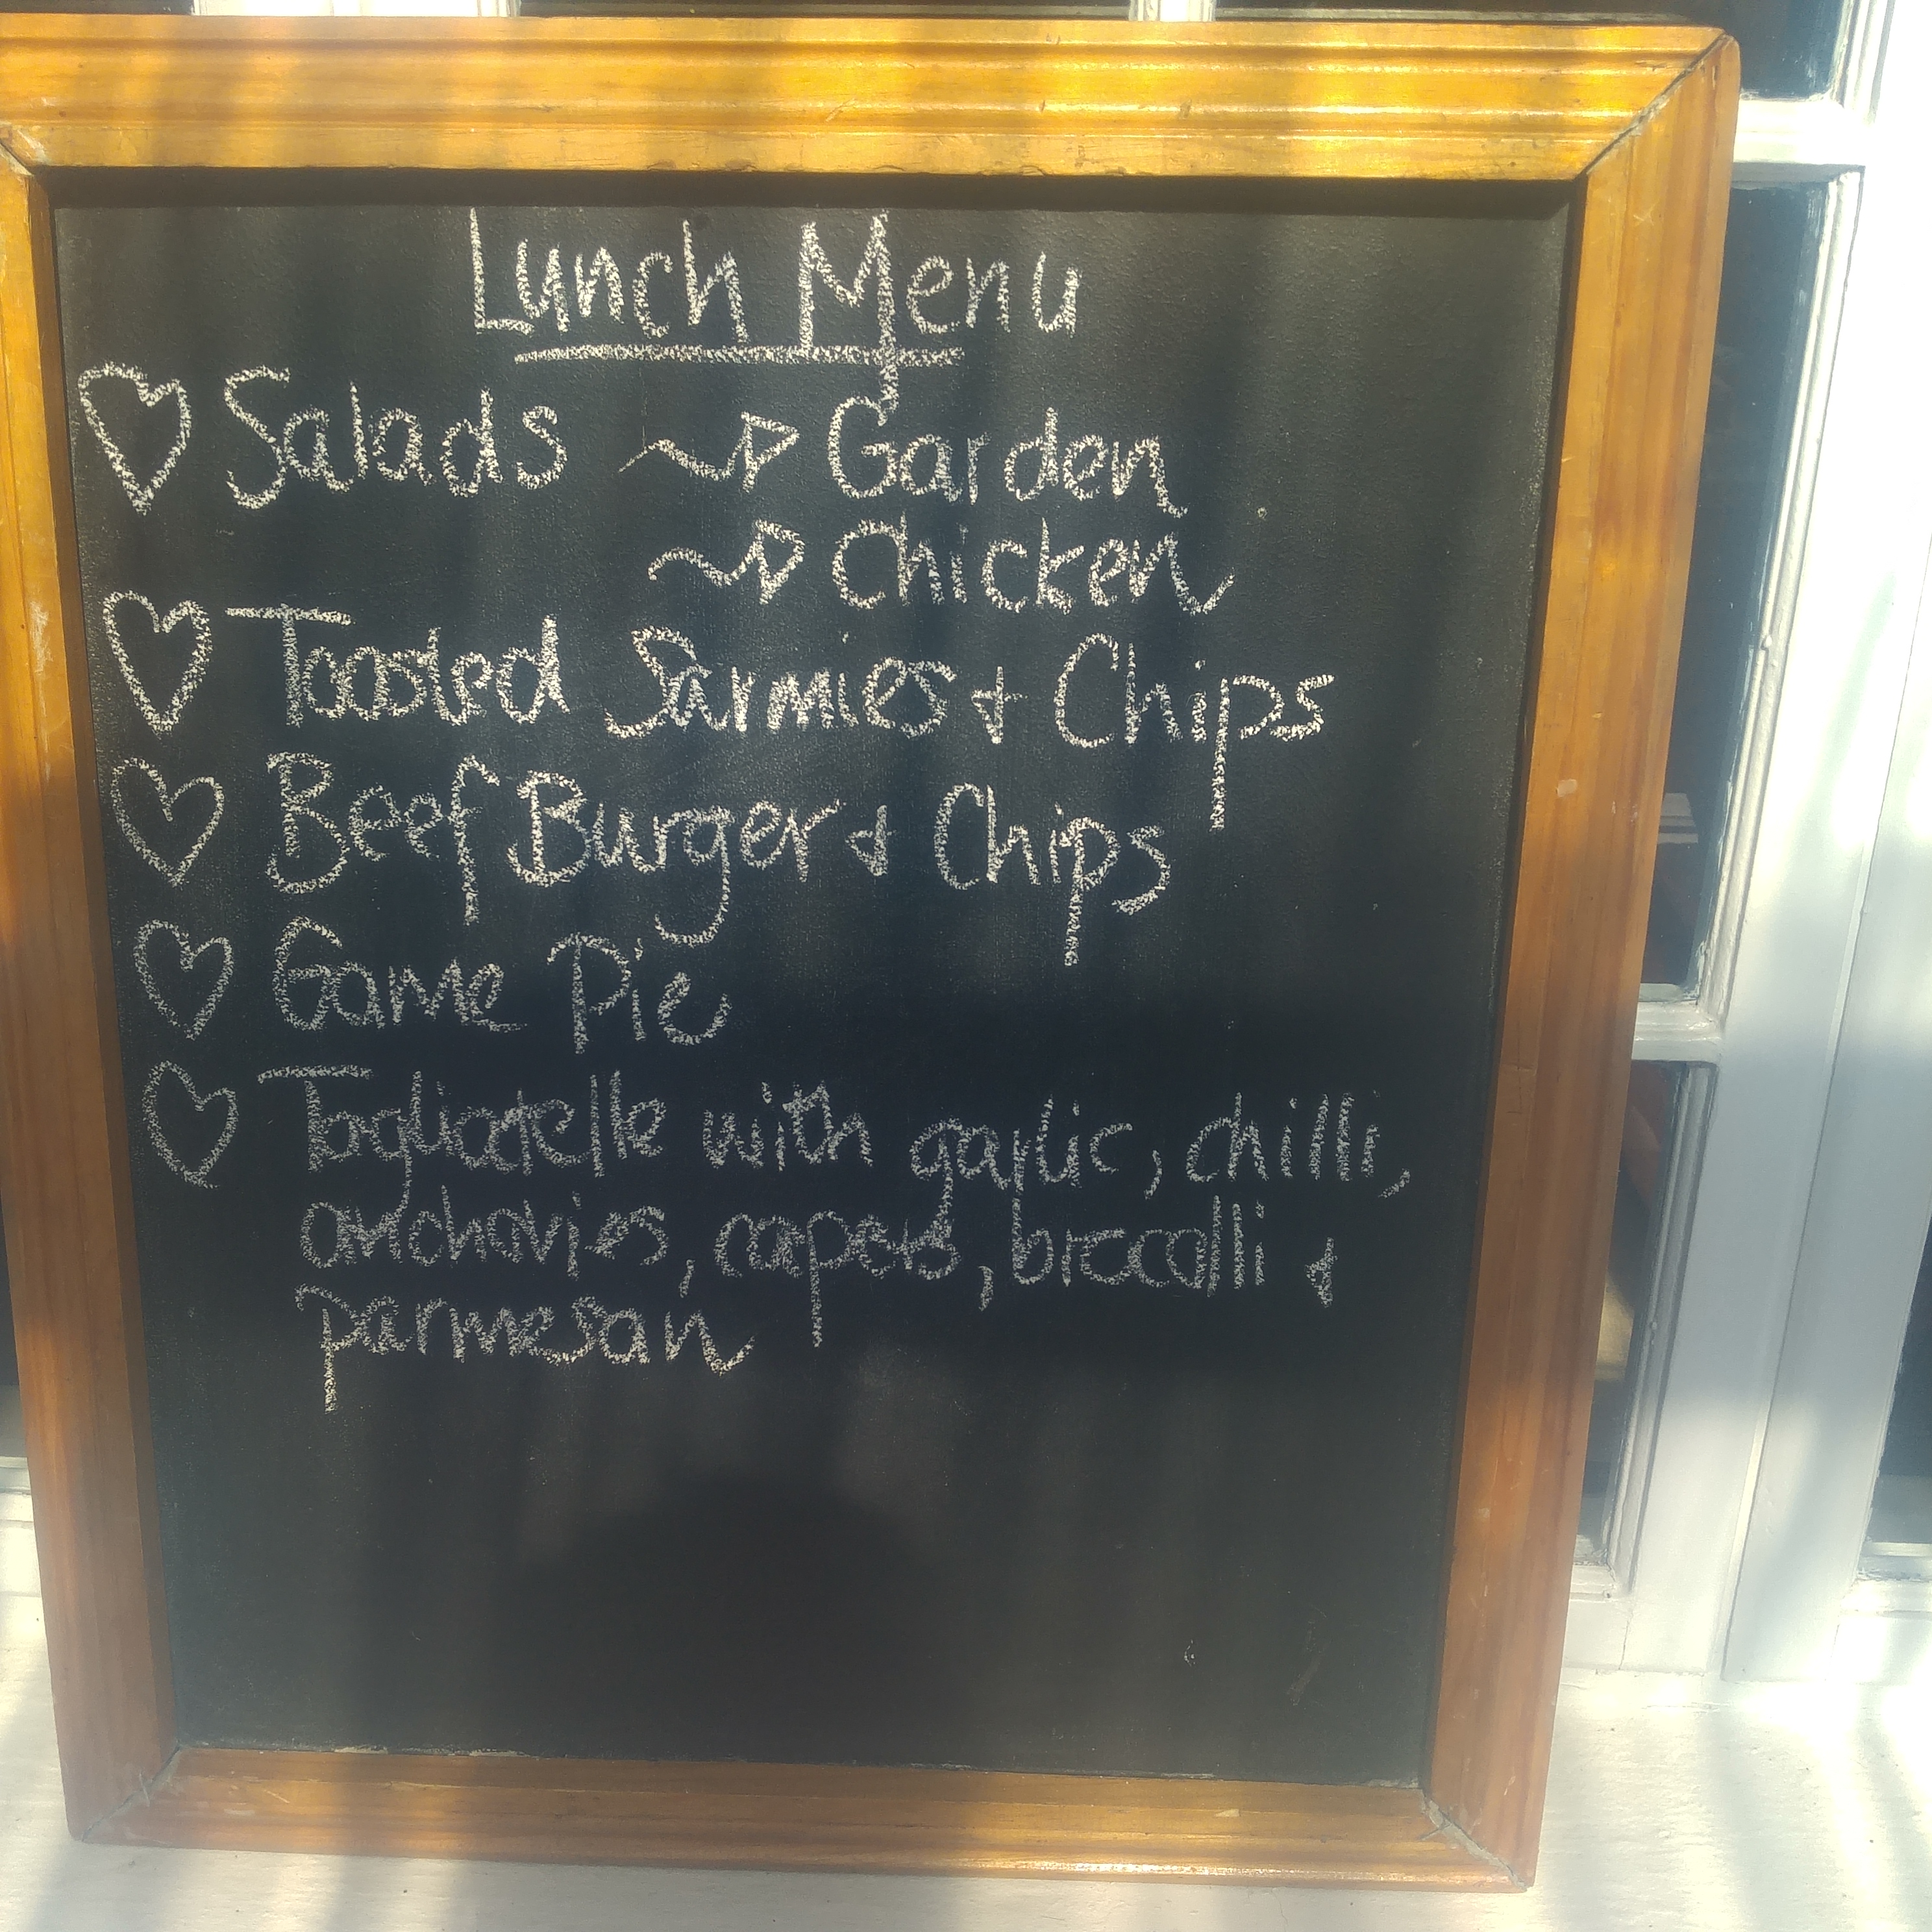 Lunch Menu
Salads Garden
Chicken
Toasted Sarmies & Chips
Beef Burger & Chips
Game Pie
Tagliatelle with garlic, chilli,
anchovies, capers, brocolli &
parmesan